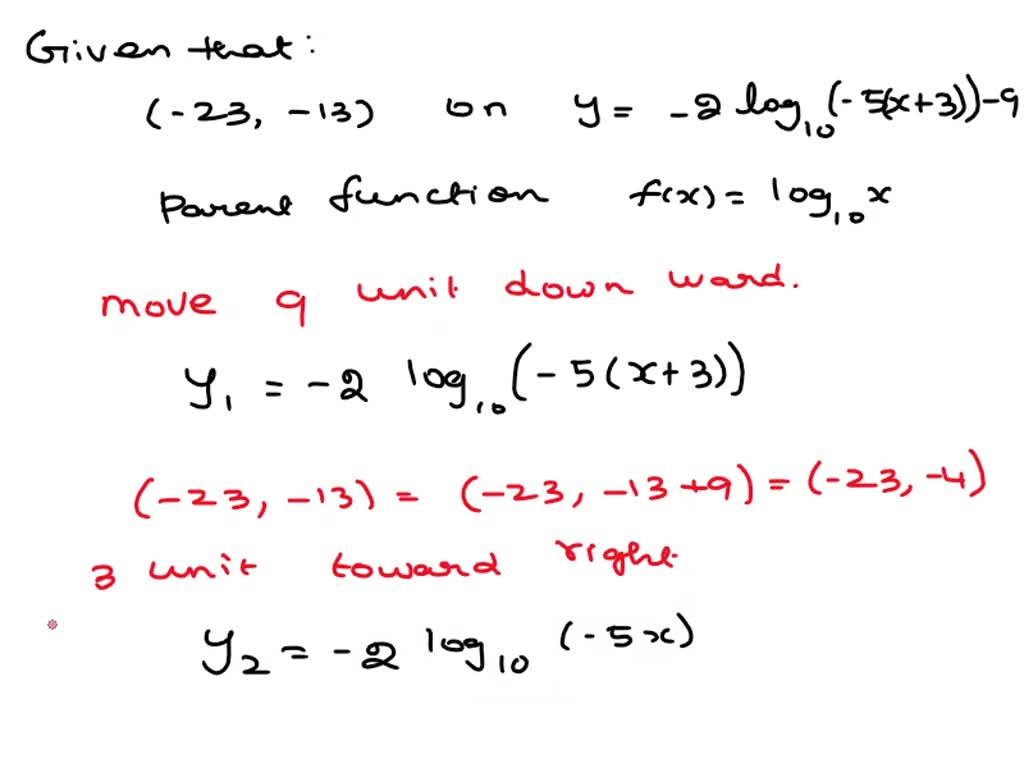 Given that:
(-23, -13) on y = -2 log₁₀(-5(x+3))-9
Parent function f(x) = log₁₀ x
move 9 unit down ward.
y₁ = -2 log₁₀ (-5(x+3))
(-23, -13) = (-23, -13+9) = (-23, -4)
3 unit toward right
y₂ = -2 log₁₀ (-5x)